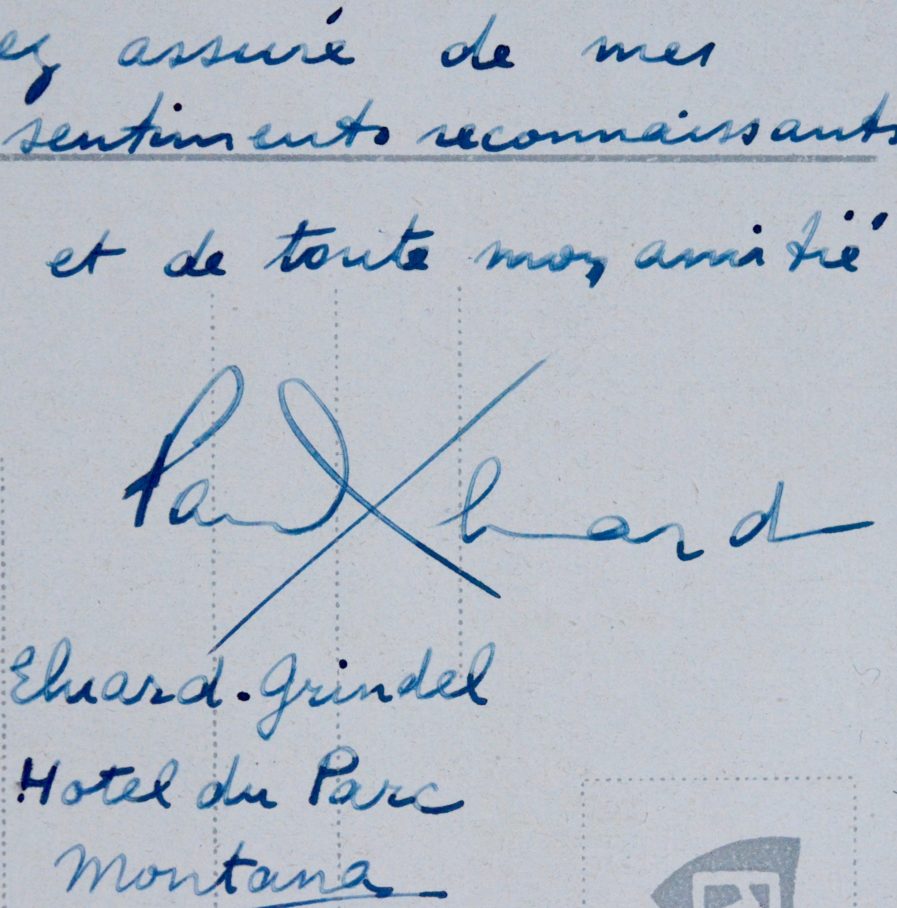 ez assuré de mes
sentiments reconnaissants
et de toute mon amitié
Paul Eluard
Eluard-Grindel
Hotel du Parc
Montana